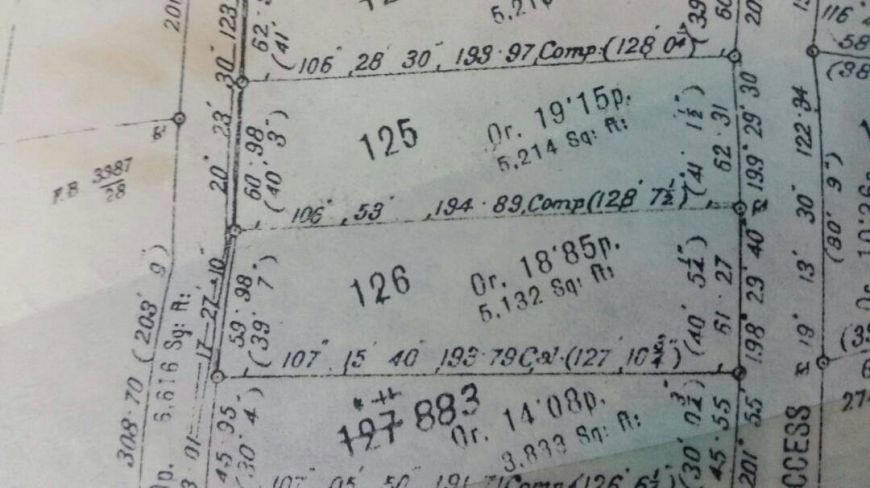 201
30' 123
62·
(41'
5,21
(39
60
20
116°
58
(38
106° ,28' 30", 193·97, Comp:(128' 0
125
0r. 19·15p.
5,214 Sq: ft:
20° 23'
60·98
(40' 3")
(41' 1½")
62·31
199° 29' 30"
122·34
F.B 3987
28
106° ,53' ,194·89, Comp(128' 7½")
126
0r. 18·85p.
5,132 Sq: ft:
17—27—10"
59·98
(39' 7")
(40' 5¼")
61·27
198° 29' 40"
19° 13' 30"
(80' 9")
0r. 10·26
308·70 (203' 9")
6,616 Sq: ft:
107° 15' 40" 193·79 Cal·(127' 10¾")
127 883
0r. 14·08p.
3,833 Sq: ft:
01—
45·95
(30' 4")
(30' 0¾")
45·55
201° 55'
CCESS
27
107° 05' 50" 191·71 Comp(126' 6½